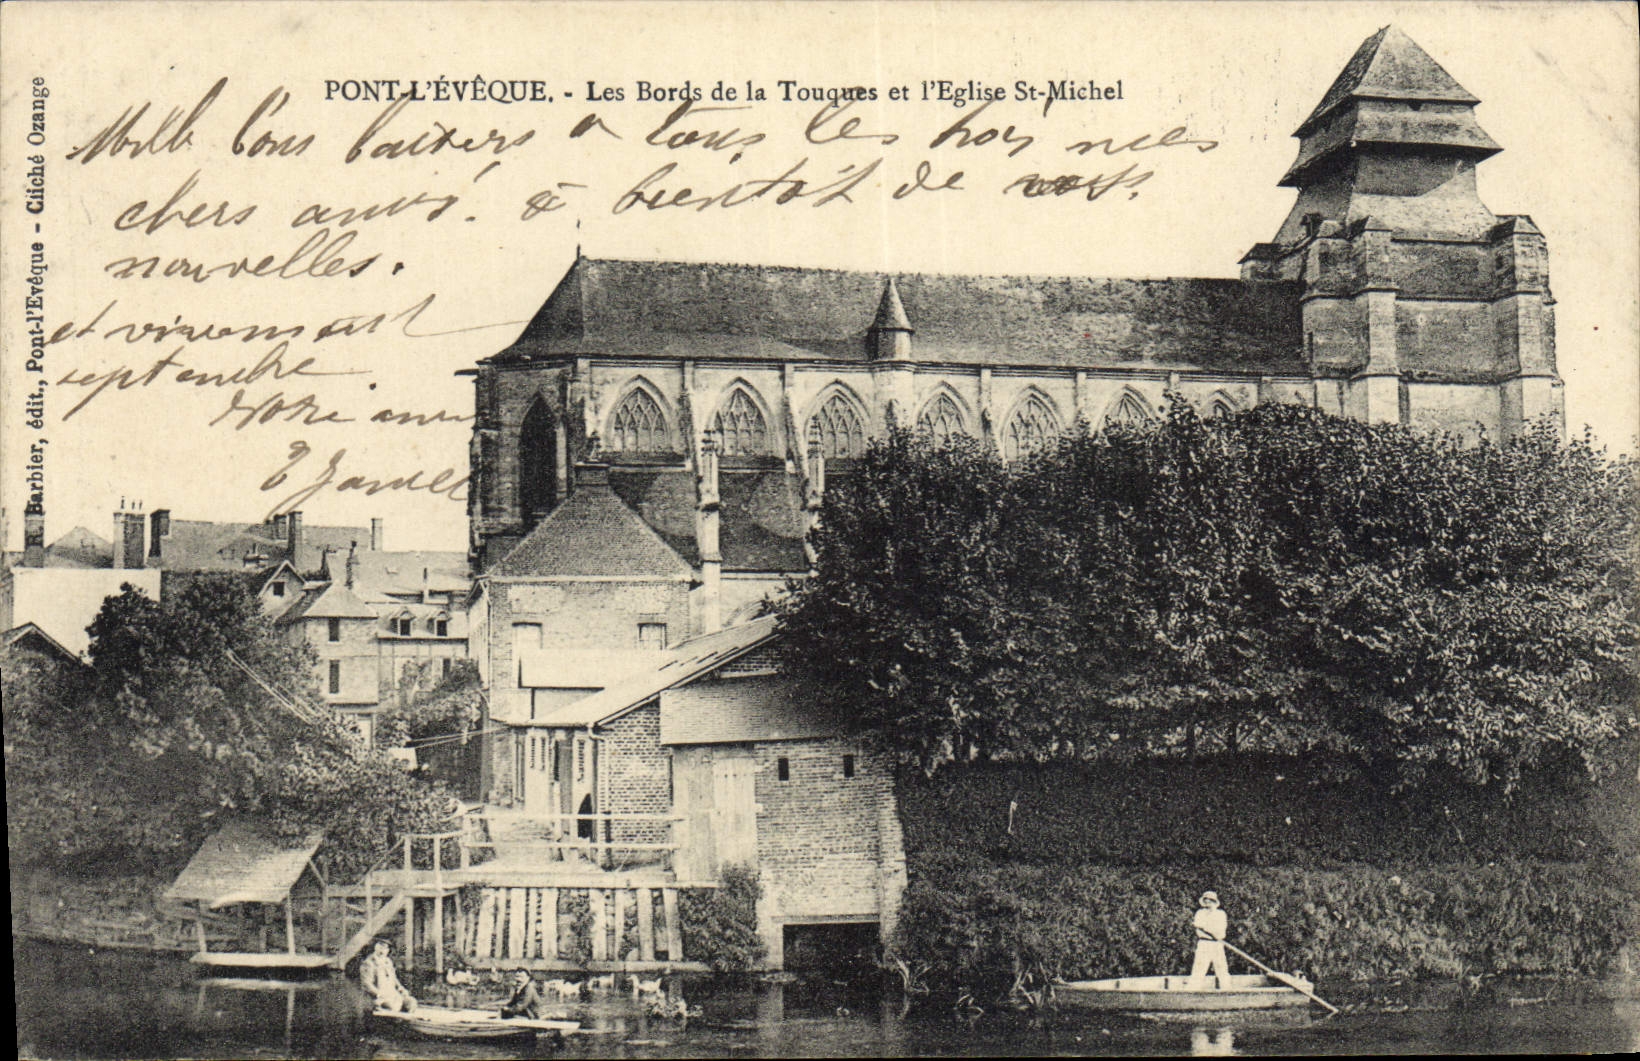 PONT-L'ÉVÊQUE. - Les Bords de la Touques et l'Eglise St-Michel
Mille bons baisers a tous les trois mes
chers amis. à bientôt de vos
nouvelles.
et vivement
septembre.
Votre amie
R. Barbier, édit., Pont-l'Evêque - Cliché Ozange